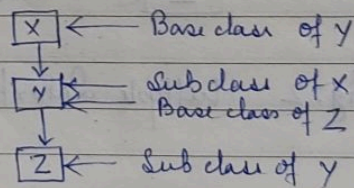 X ← Base class of Y
Y ← Sub class of X
← Base class of Z
Z ← Sub class of Y